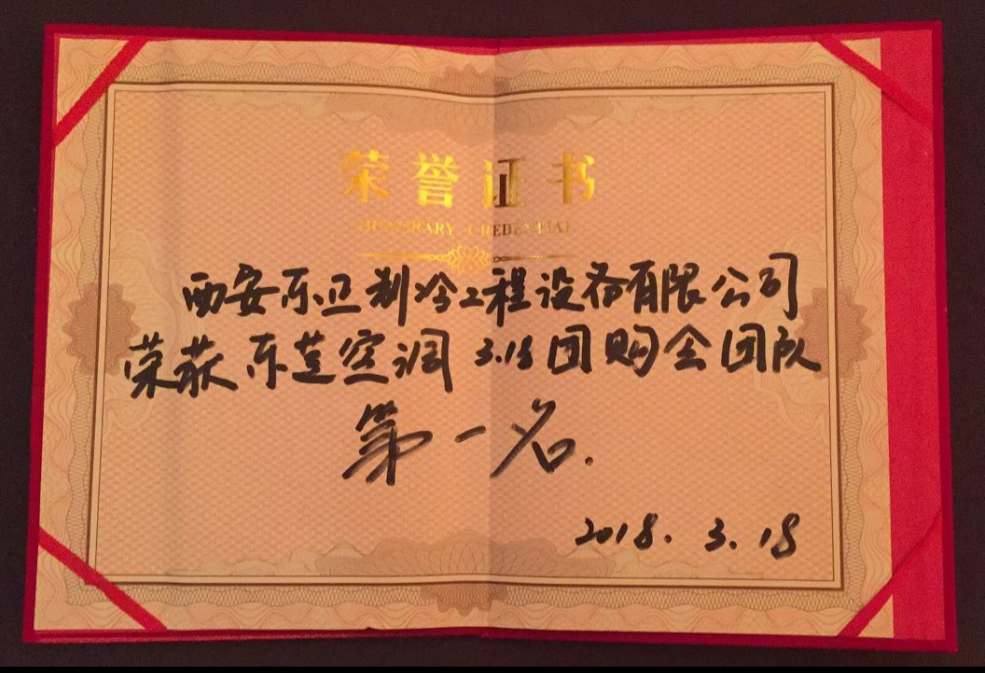 荣誉证书
HONORARY CREDENTIAL
西安东卫制冷工程设备有限公司
荣获东芝空调 3.18团购会团队
第一名.
2018. 3. 18